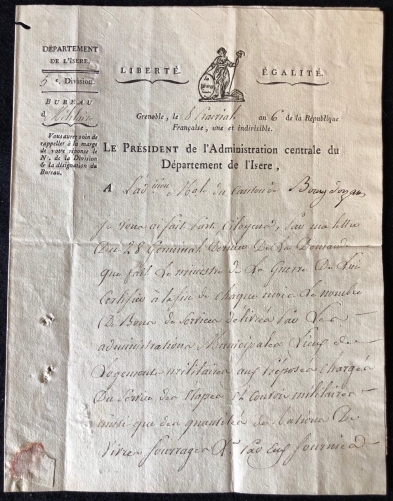 DÉPARTEMENT
DE L'ISERE.
Division.
BUREAU
Vous aurez soin de
rappeller à la marge
de votre réponse le
N., de la Division &
la désignation du
Bureau.
LIBERTÉ. ÉGALITÉ.
Grenoble, le 8 Prairial an 6 de la République
Française, une et indivisible.
LE PRÉSIDENT de l'Administration centrale du
Département de l'Isere,
A L'ad.on M.ale du Canton de Bourg d'oysans
je vous ai fait part, Citoyens, par ma lettre
du 28 Germinal dernier de la demande
que fait le ministre de la Guerre de lui
certifier à la fin de chaque mois le nombre
de Bons de service délivrés par les
administrations Municipales lieux de
logements militaires aux préposés chargés
du service des étapes et convois militaires
ainsi que des quantités de rations de
vivres fourrages &a par eux fournies